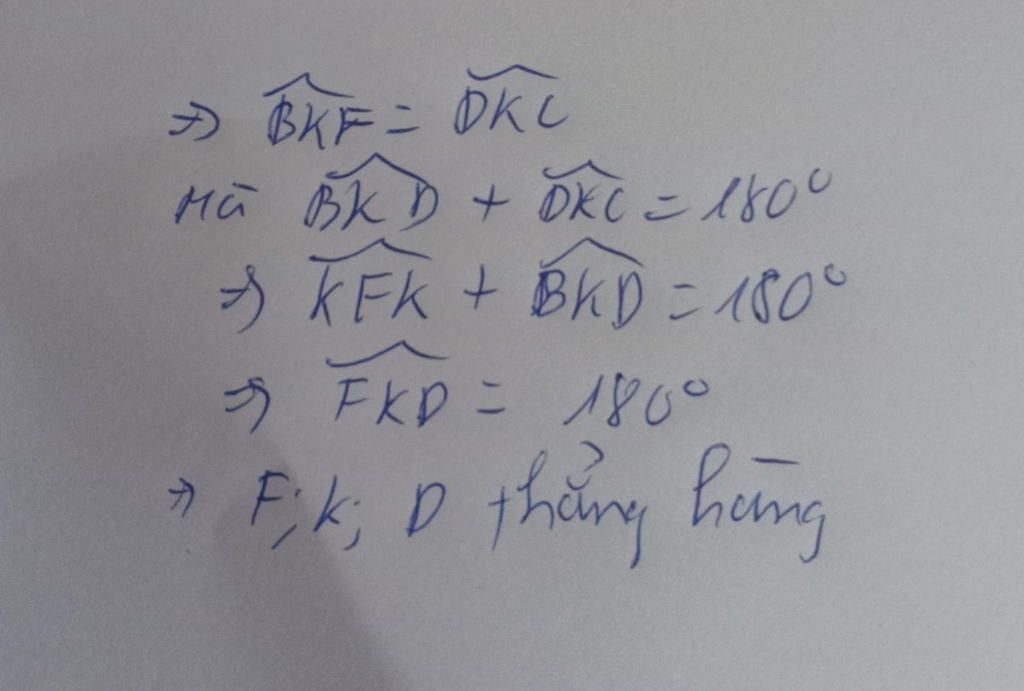 => \widehat{BKF} = \widehat{DKC}
Mà \widehat{BKD} + \widehat{DKC} = 180°
=> \widehat{KFK} + \widehat{BKD} = 180°
=> \widehat{FKD} = 180°
=> F; K; D thẳng hàng